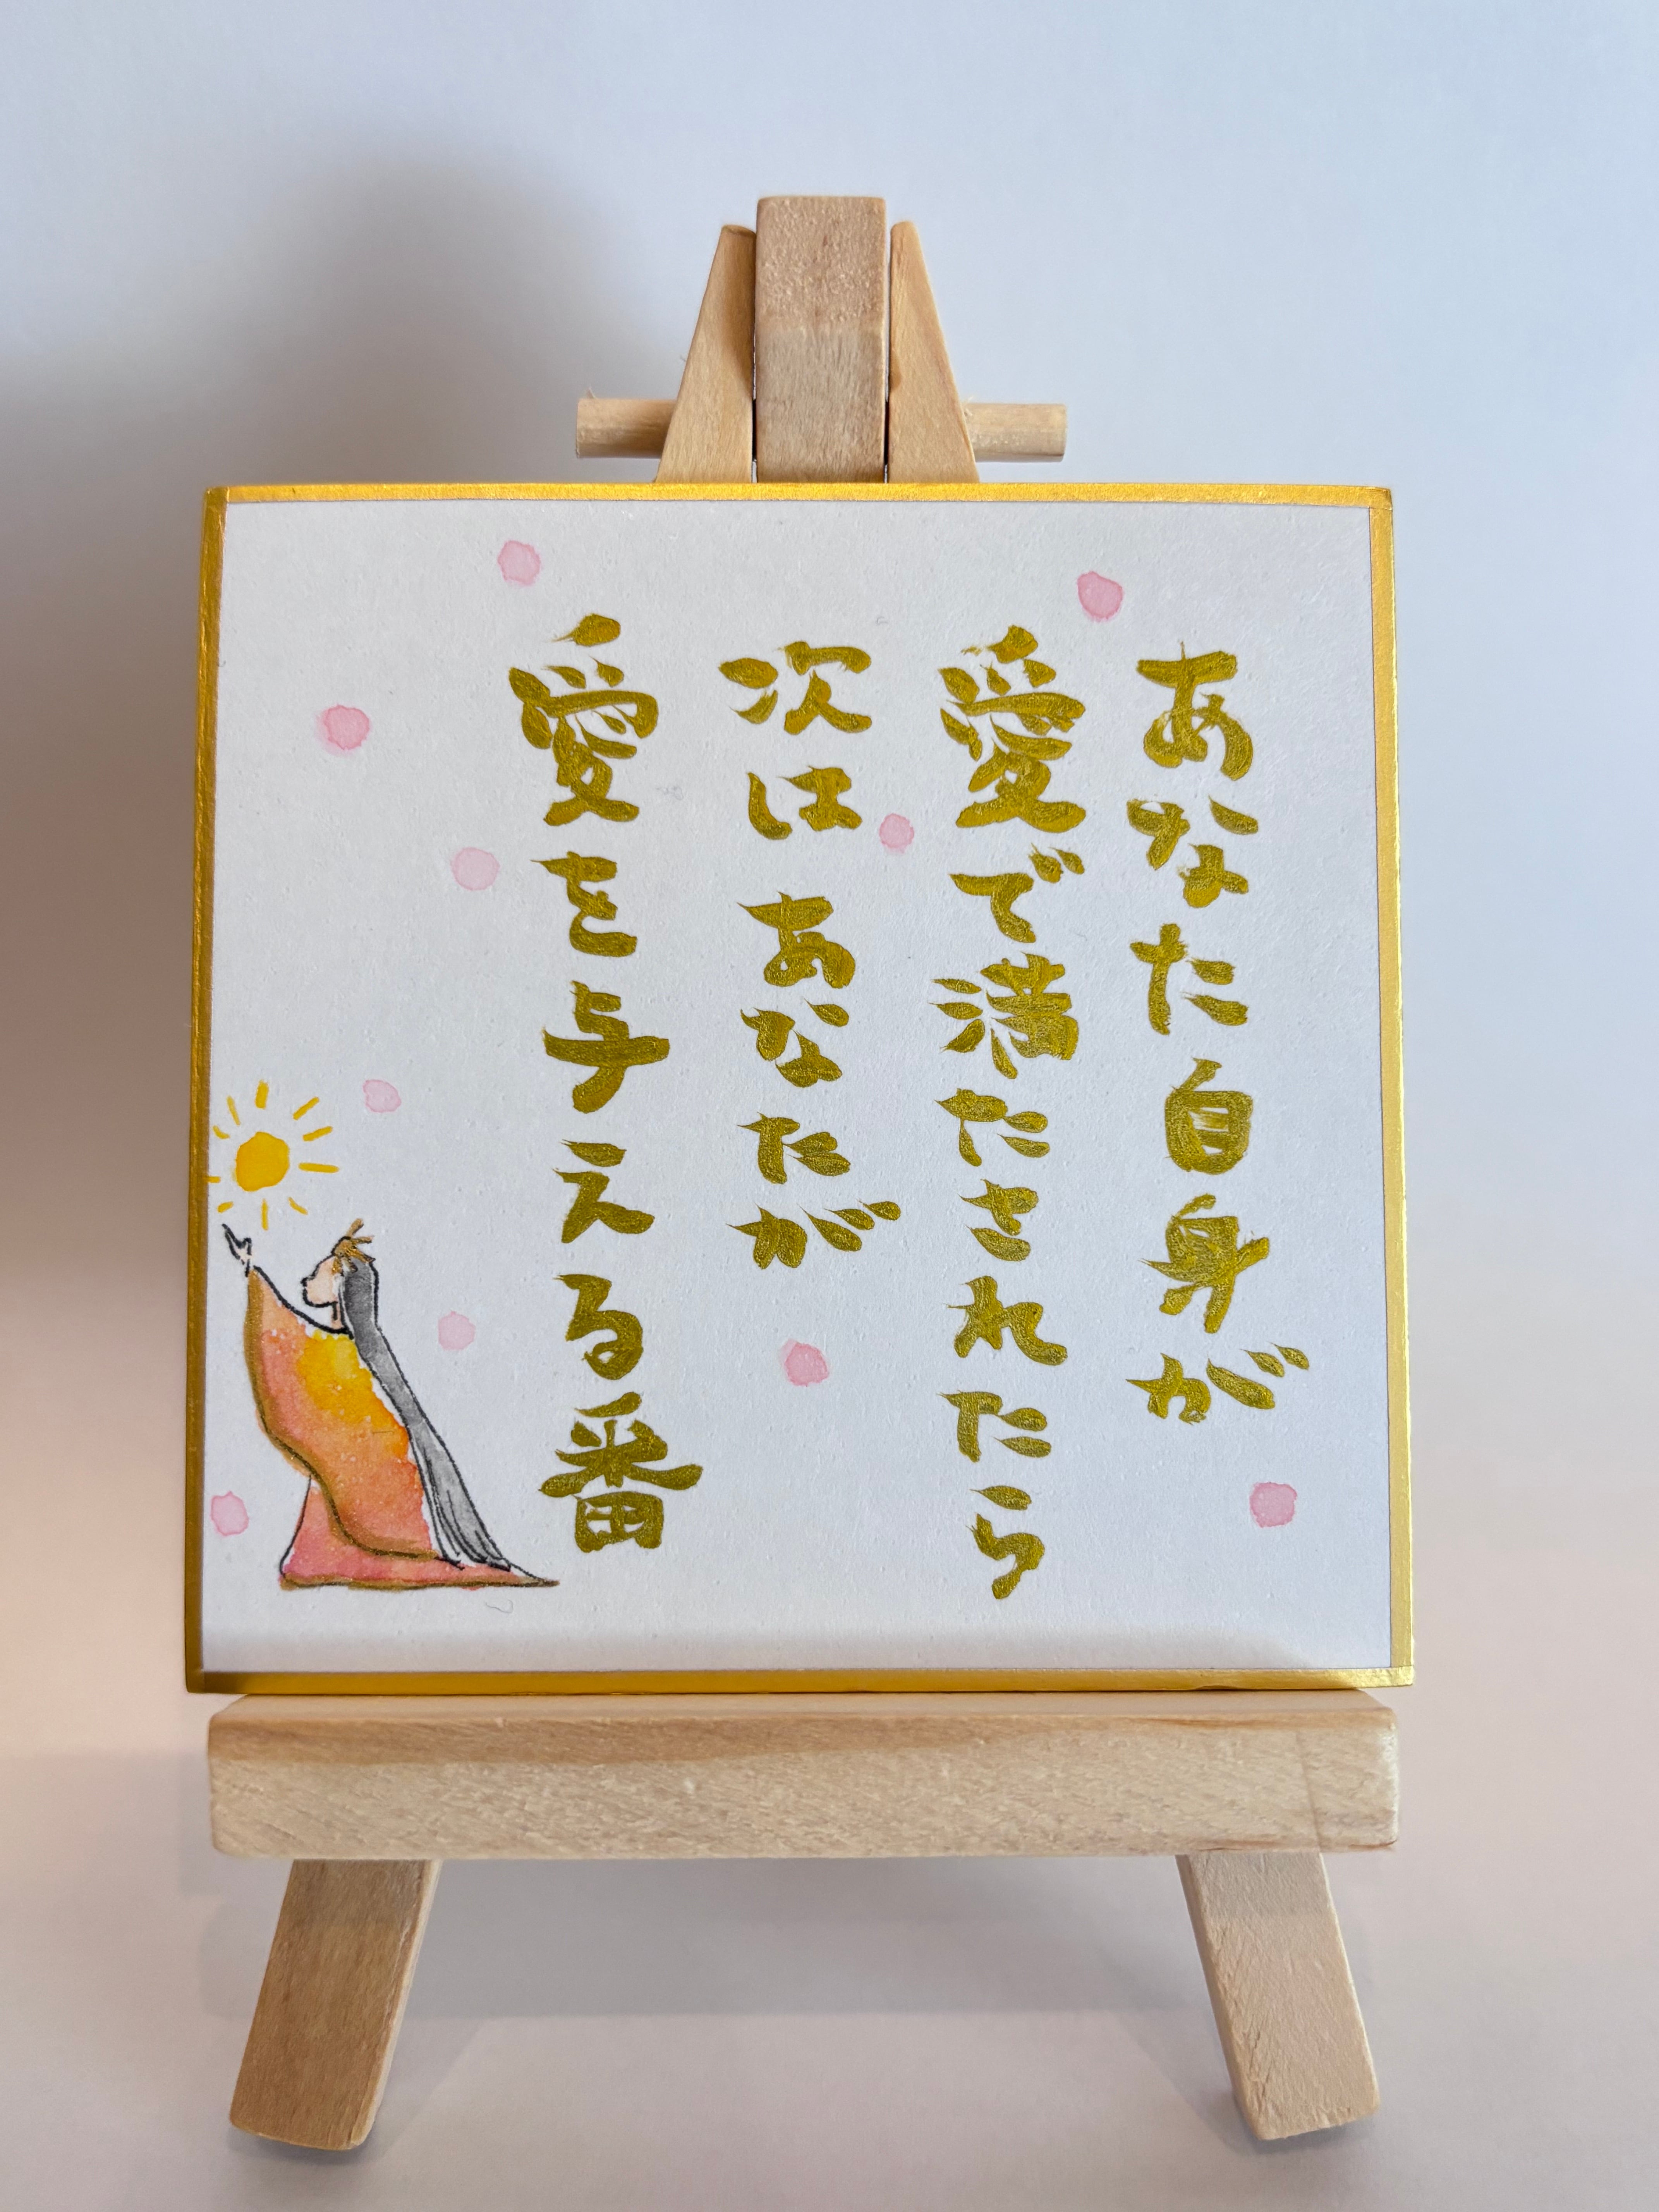 あなた自身が
愛で満たされたら
次は あなたが
愛を与える番